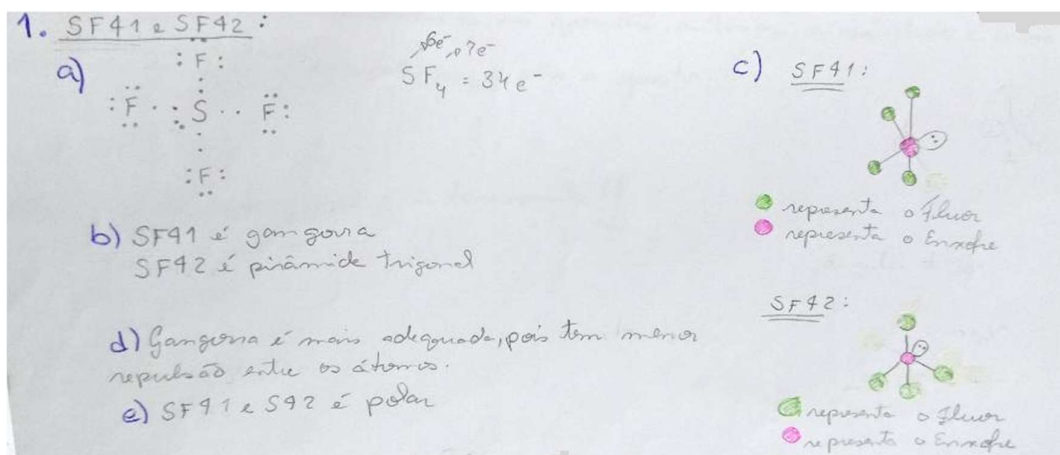 1. SF41 e SF42:
a)
:F:
:F · · :S · · F:
:F:
6e⁻ 7e⁻
SF₄ = 34e⁻
b) SF41 é gangorra
SF42 é pirâmide trigonal
d) Gangorra é mais adequada, pois tem menor
repulsão entre os átomos.
e) SF41 e S42 é polar
c) SF41:
representa o Fluor
representa o Enxofre
SF42:
representa o Fluor
representa o Enxofre